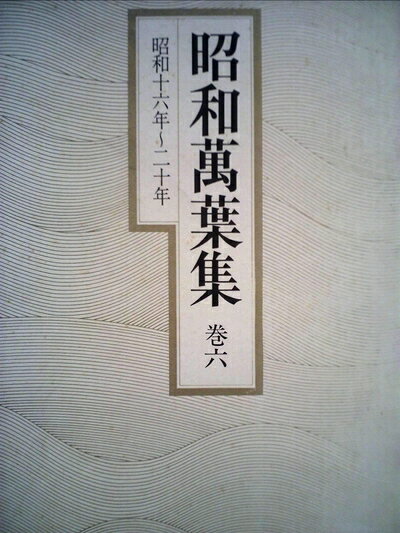 昭和萬葉集 巻六
昭和十六年~二十年